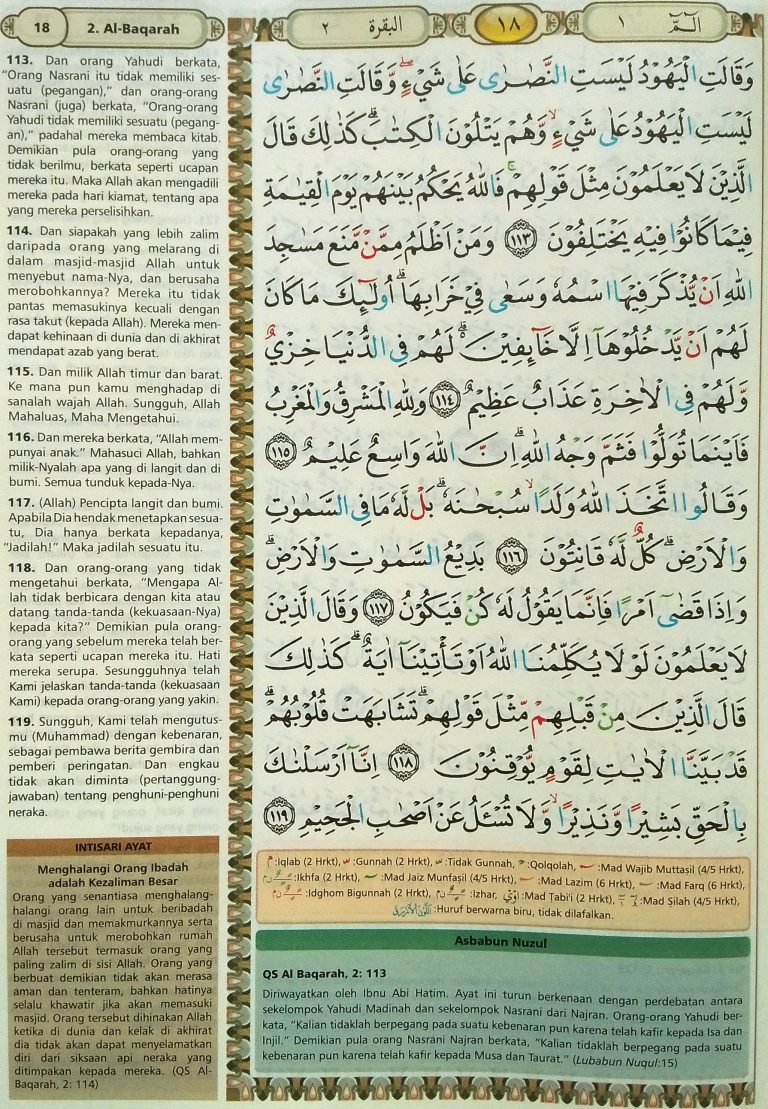 18
2. Al-Baqarah
البقرة ٢
١٨
الۤمّۤ ١
113. Dan orang Yahudi berkata,
"Orang Nasrani itu tidak memiliki ses-
uatu (pegangan)," dan orang-orang
Nasrani (juga) berkata, "Orang-orang
Yahudi tidak memiliki sesuatu (pegang-
an)," padahal mereka membaca kitab.
Demikian pula orang-orang yang
tidak berilmu, berkata seperti ucapan
mereka itu. Maka Allah akan mengadili
mereka pada hari kiamat, tentang apa
yang mereka perselisihkan.
114. Dan siapakah yang lebih zalim
daripada orang yang melarang di
dalam masjid-masjid Allah untuk
menyebut nama-Nya, dan berusaha
merobohkannya? Mereka itu tidak
pantas memasukinya kecuali dengan
rasa takut (kepada Allah). Mereka men-
dapat kehinaan di dunia dan di akhirat
mendapat azab yang berat.
115. Dan milik Allah timur dan barat.
Ke mana pun kamu menghadap di
sanalah wajah Allah. Sungguh, Allah
Mahaluas, Maha Mengetahui.
116. Dan mereka berkata, "Allah mem-
punyai anak." Mahasuci Allah, bahkan
milik-Nyalah apa yang di langit dan di
bumi. Semua tunduk kepada-Nya.
117. (Allah) Pencipta langit dan bumi.
Apabila Dia hendak menetapkan sesua-
tu, Dia hanya berkata kepadanya,
"Jadilah!" Maka jadilah sesuatu itu.
118. Dan orang-orang yang tidak
mengetahui berkata, "Mengapa Al-
lah tidak berbicara dengan kita atau
datang tanda-tanda (kekuasaan-Nya)
kepada kita?" Demikian pula orang-
orang yang sebelum mereka telah ber-
kata seperti ucapan mereka itu. Hati
mereka serupa. Sesungguhnya telah
Kami jelaskan tanda-tanda (kekuasaan
Kami) kepada orang-orang yang yakin.
119. Sungguh, Kami telah mengutus-
mu (Muhammad) dengan kebenaran,
sebagai pembawa berita gembira dan
pemberi peringatan. Dan engkau
tidak akan diminta (pertanggung-
jawaban) tentang penghuni-penghuni
neraka.
INTISARI AYAT
Menghalangi Orang Ibadah
adalah Kezaliman Besar
Orang yang senantiasa menghalang-
halangi orang lain untuk beribadah
di masjid dan memakmurkannya serta
berusaha untuk merobohkan rumah
Allah tersebut termasuk orang yang
paling zalim di sisi Allah. Orang yang
berbuat demikian tidak akan merasa
aman dan tenteram, bahkan hatinya
selalu khawatir jika akan memasuki
masjid. Orang tersebut dihinakan Allah
ketika di dunia dan kelak di akhirat
dia tidak akan dapat menyelamatkan
diri dari siksaan api neraka yang
ditimpakan kepada mereka. (QS Al-
Baqarah, 2: 114)
وَقَالَتِ الْيَهُوْدُ لَيْسَتِ النَّصٰرٰى عَلٰى شَيْءٍۖ وَّقَالَتِ النَّصٰرٰى
لَيْسَتِ الْيَهُوْدُ عَلٰى شَيْءٍۙ وَّهُمْ يَتْلُوْنَ الْكِتٰبَۗ كَذٰلِكَ قَالَ
الَّذِيْنَ لَا يَعْلَمُوْنَ مِثْلَ قَوْلِهِمْۚ فَاللّٰهُ يَحْكُمُ بَيْنَهُمْ يَوْمَ الْقِيٰمَةِ
فِيْمَا كَانُوْا فِيْهِ يَخْتَلِفُوْنَ ١١٣ وَمَنْ اَظْلَمُ مِمَّنْ مَّنَعَ مَسٰجِدَ
اللّٰهِ اَنْ يُّذْكَرَ فِيْهَا اسْمُهٗ وَسَعٰى فِيْ خَرَابِهَاۗ اُولٰۤىِٕكَ مَا كَانَ
لَهُمْ اَنْ يَّدْخُلُوْهَآ اِلَّا خَاۤىِٕفِيْنَ ۗ لَهُمْ فِى الدُّنْيَا خِزْيٌ
وَّلَهُمْ فِى الْاٰخِرَةِ عَذَابٌ عَظِيْمٌ ١١٤ وَلِلّٰهِ الْمَشْرِقُ وَالْمَغْرِبُ
فَاَيْنَمَا تُوَلُّوْا فَثَمَّ وَجْهُ اللّٰهِ ۗ اِنَّ اللّٰهَ وَاسِعٌ عَلِيْمٌ ١١٥
وَقَالُوا اتَّخَذَ اللّٰهُ وَلَدًاۙ سُبْحٰنَهٗ ۗ بَلْ لَّهٗ مَا فِى السَّمٰوٰتِ
وَالْاَرْضِۗ كُلٌّ لَّهٗ قَانِتُوْنَ ١١٦ بَدِيْعُ السَّمٰوٰتِ وَالْاَرْضِۗ
وَاِذَا قَضٰٓى اَمْرًا فَاِنَّمَا يَقُوْلُ لَهٗ كُنْ فَيَكُوْنُ ١١٧ وَقَالَ الَّذِيْنَ
لَا يَعْلَمُوْنَ لَوْلَا يُكَلِّمُنَا اللّٰهُ اَوْ تَأْتِيْنَآ اٰيَةٌ ۗ كَذٰلِكَ
قَالَ الَّذِيْنَ مِنْ قَبْلِهِمْ مِّثْلَ قَوْلِهِمْۗ تَشَابَهَتْ قُلُوْبُهُمْۗ
قَدْ بَيَّنَّا الْاٰيٰتِ لِقَوْمٍ يُّوْقِنُوْنَ ١١٨ اِنَّآ اَرْسَلْنٰكَ
بِالْحَقِّ بَشِيْرًا وَّنَذِيْرًاۙ وَّلَا تُسْـَٔلُ عَنْ اَصْحٰبِ الْجَحِيْمِ ١١٩
:Iqlab (2 Hrkt), :Gunnah (2 Hrkt), :Tidak Gunnah, :Qolqolah, :Mad Wajib Muttaṣil (4/5 Hrkt),
:Ikhfa (2 Hrkt), :Mad Jaiz Munfaṣil (4/5 Hrkt), :Mad Lazim (6 Hrkt), :Mad Farq (6 Hrkt),
:Idghom Bigunnah (2 Hrkt), :Izhar, :Mad Ṭabi'i (2 Hrkt), :Mad Ṣilah (4/5 Hrkt),
:Huruf berwarna biru, tidak dilafalkan.
Asbabun Nuzul
QS Al Baqarah, 2: 113
Diriwayatkan oleh Ibnu Abi Hatim. Ayat ini turun berkenaan dengan perdebatan antara
sekelompok Yahudi Madinah dan sekelompok Nasrani dari Najran. Orang-orang Yahudi ber-
kata, "Kalian tidaklah berpegang pada suatu kebenaran pun karena telah kafir kepada Isa dan
Injil." Demikian pula orang Nasrani Najran berkata, "Kalian tidaklah berpegang pada suatu
kebenaran pun karena telah kafir kepada Musa dan Taurat." (Lubabun Nuqul:15)